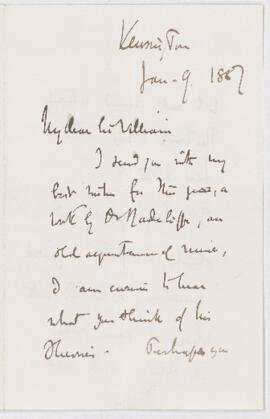 Kensington
Jan - 9. 1867
My dear Sir William
I send you with my
best wishes for this year, a
work by Dr Radcliffe, an
old acquaintance of mine,
I am curious to hear
what you think of his
Theories - Perhaps you